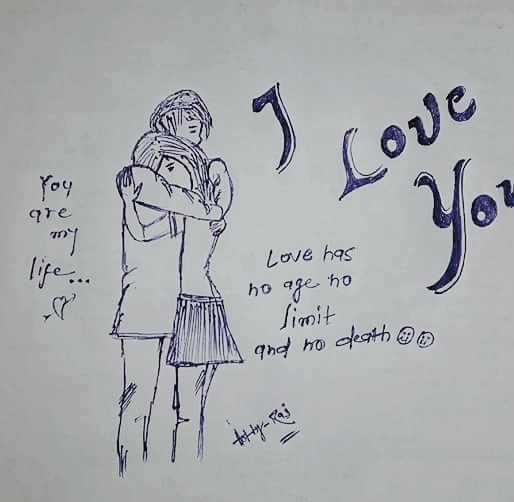 I
Love
You
You
are
my
life...
Love has
no age no
limit
and no death